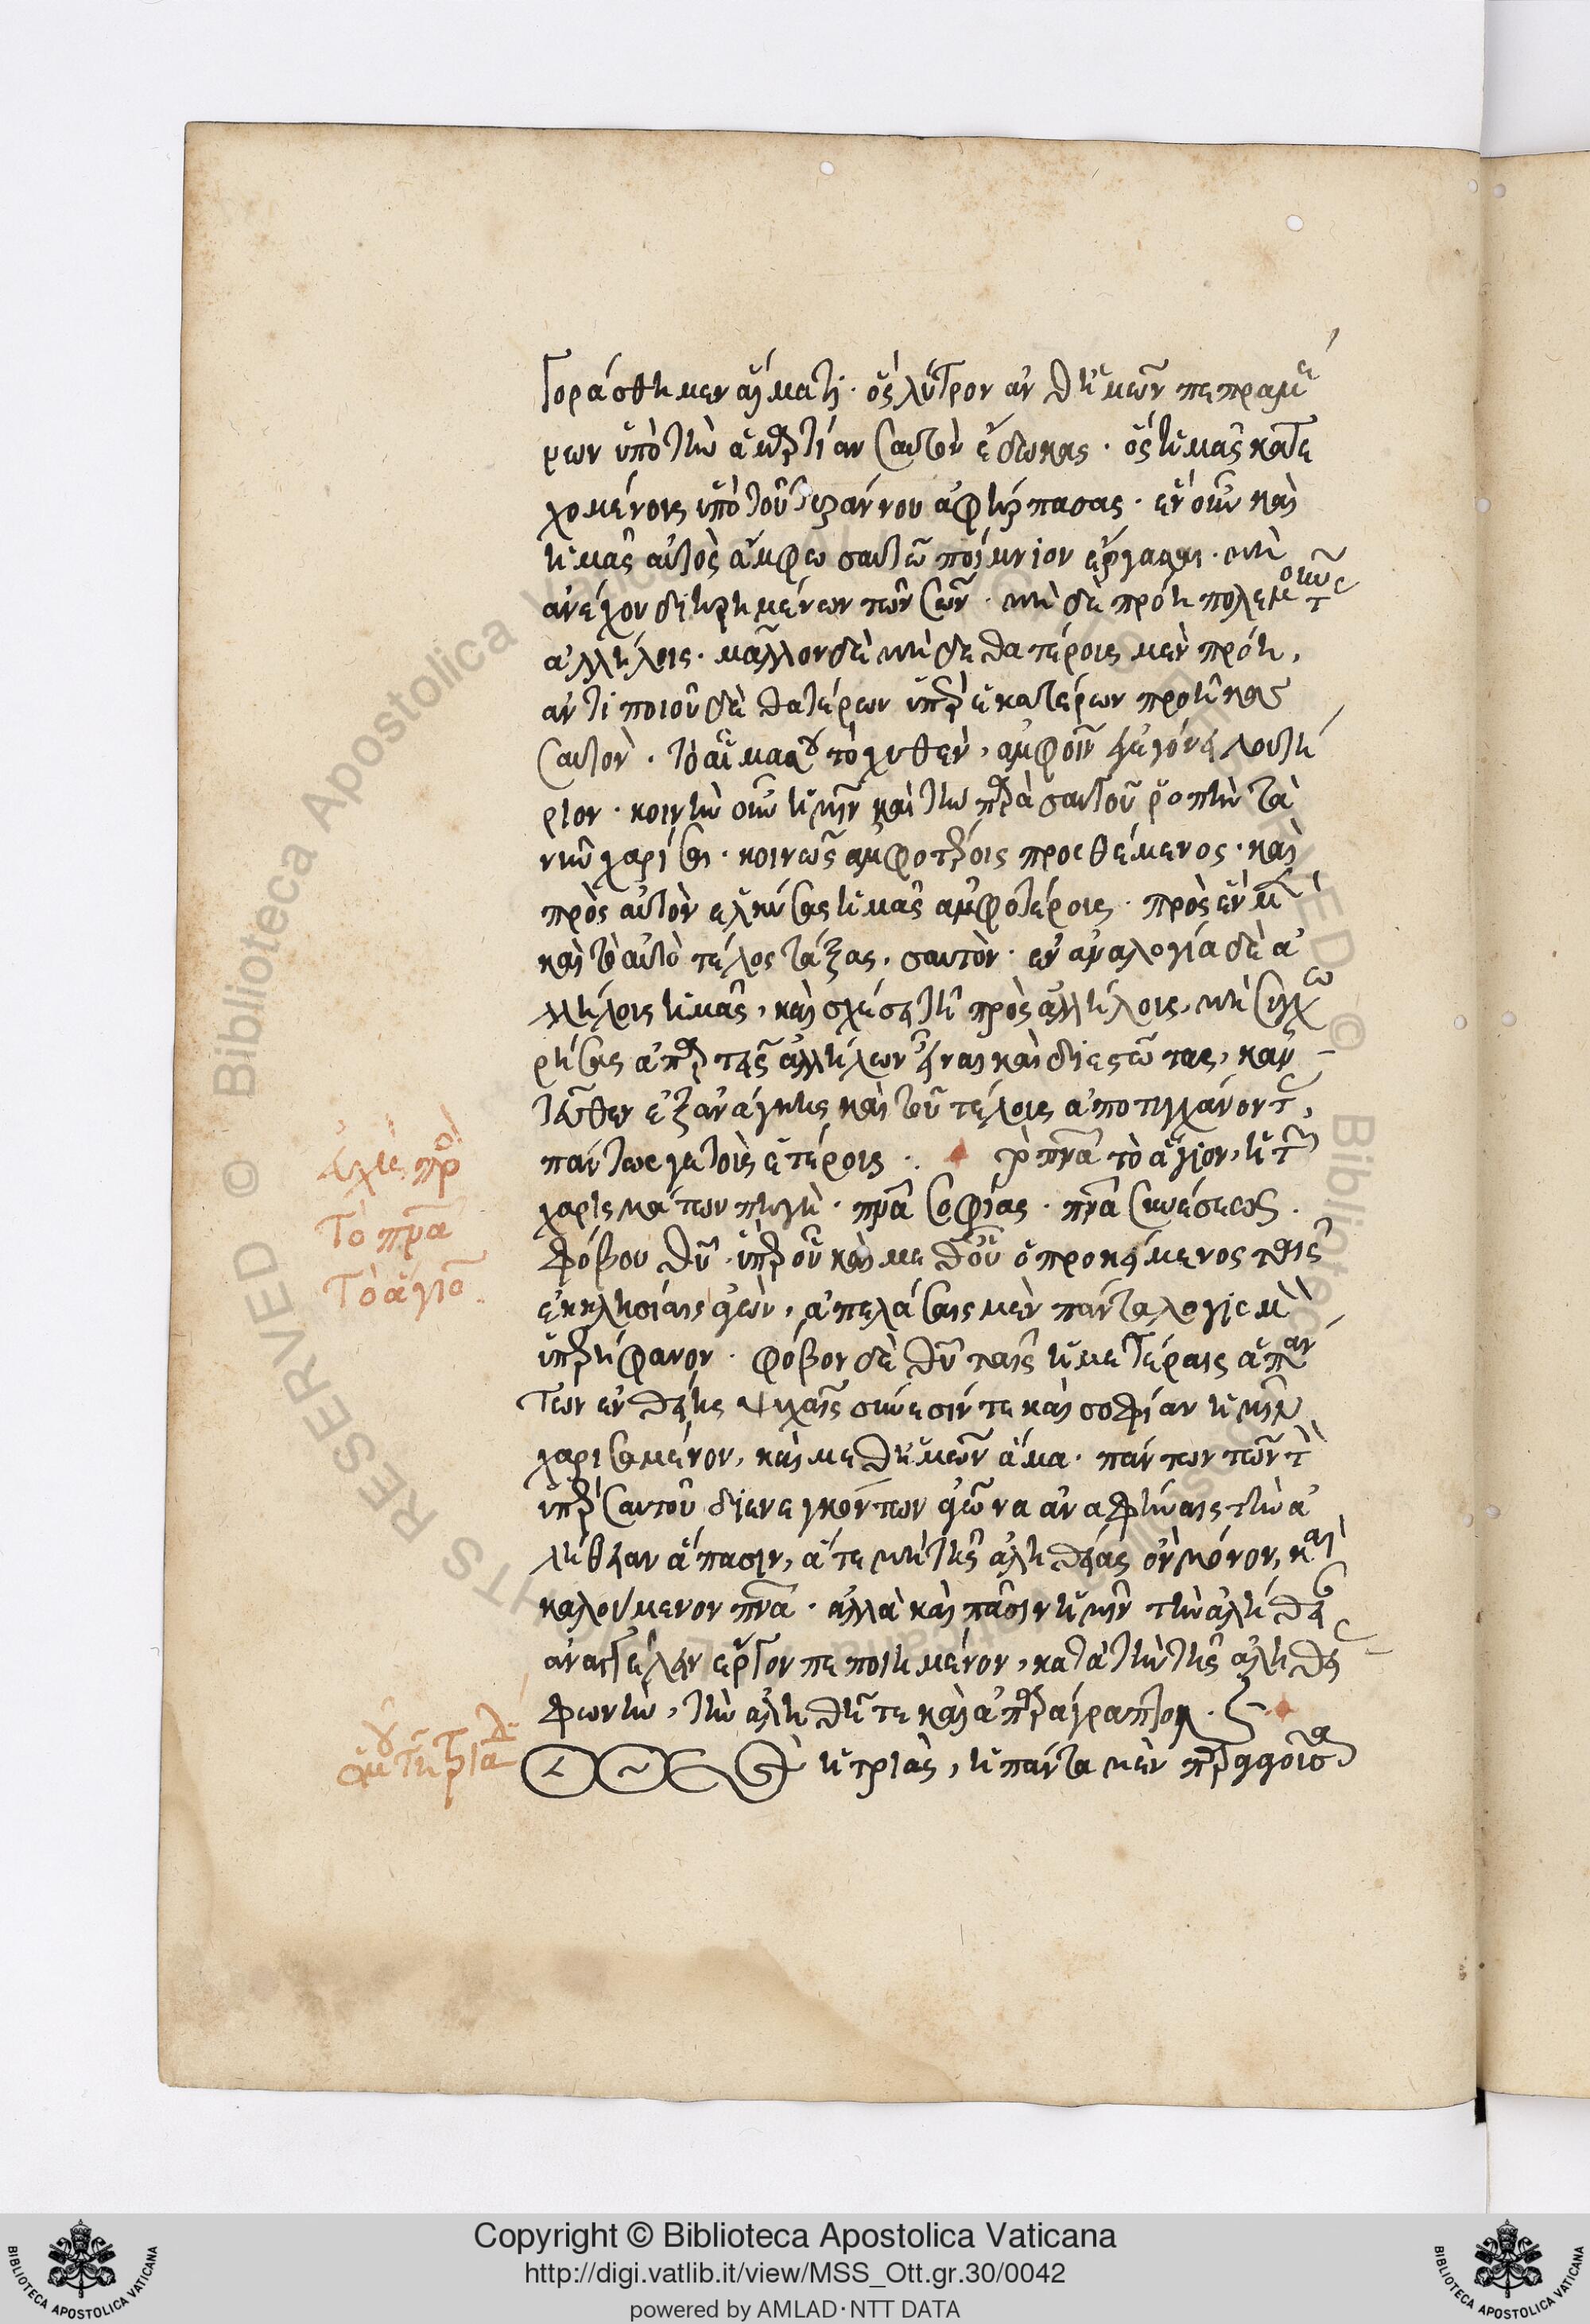 γοράσθημεν αἵματι· ὃς λύτρον ἀνθ' ἡμῶν πεπραμέ
νων ὑπὸ τὴν ἁμαρτίαν σαυτὸν ἔδωκας· ὃς ἡμᾶς κατε
χομένους ὑπὸ τοῦ τυράννου ἀφήρπασας· ἓν οὖν καὶ
ἡμᾶς αὐτὸς ἄμφω σαυτῷ ποίμνιον ἔργασαι· μὴ
ἀνέχου διῃρημένων τῶν σῶν· μὴ δὲ πρόῃ πολεμουμένους
ἀλλήλοις· μᾶλλον δὲ μὴ δὲ θατέρους μὲν πρόῃ,
ἀντιποιοῦ δὲ θατέρων ὑπὲρ ἑκατέρων προῆκας
σαυτὸν· τὸ αἷμά σου τὸ χυθὲν, ἀμφοῖν γέγονε λουτή
ριον· κοινὴν οὖν ἡμῖν καὶ τὴν παρὰ σαυτοῦ ῥοπὴν τὰ
νῦν χαρίσαι· κοινῶς ἀμφοτέροις προςθέμενος· καὶ
πρὸς αὐτὸν ἑλκύσας ἡμᾶς ἀμφοτέρους· πρὸς ἓν μὲν
καὶ τὸ αὐτὸ τέλος τάξας, σαυτὸν· ἐν ἀναλογίᾳ δὲ ἀ
λλήλοις ἡμᾶς, καὶ σχέσει τῇ πρὸς ἀλλήλους, μὴ συγχω
ρήσας ἀπαρτᾶσθαι ἀλλήλων εἶναι καὶ διεστῶτας, κἀν
τεῦθεν ἐξ ἀνάγκης καὶ τοῦ τέλους ἀποτυγχάνοντας,
πάντως γε τοὺς ἑτέρους. πνεῦμα τὸ ἅγιον, ἡ τῶν
χαρισμάτων πηγὴ· πνεῦμα σοφίας· πνεῦμα συνέσεως·
φόβου θεοῦ· ὑπὲρ οὗ καὶ μεθ' οὗ ὁ προκείμενος ταῖς
ἐκκλησίαις ἀγὼν, ἀπελάσαις μὲν πάντα λογισμὸν
ὑπερήφανον· φόβον δὲ θεοῦ ταῖς ἡμετέραις ἁπάν
των ἐνθείης ψυχαῖς σύνεσίν τε καὶ σοφίαν ἡμῖν
χαρισάμενον, καὶ μεθ' ἡμῶν ἅμα· πάντων τῶν τὸν
ὑπὲρ σαυτοῦ διενεγκόντων ἀγῶνα ἀναφήναις τὴν ἀ
λήθειαν ἅπασιν, ἅτε μὴ τῆς ἀληθείας ὂν μόνον, καὶ
καλούμενον πνεῦμα· ἀλλὰ καὶ πᾶσιν ἡμῖν τὴν ἀλήθειαν
ἀναγγέλειν ἔργον πεποιημένον, κατὰ τὴν τῆς ἀληθείας
φωνὴν, τὴν ἀληθῆ τε καὶ ἀπαράγραπτον.
ἡ τριὰς, ἡ πάντα μὲν
τὸ πνεῦμα
τὸ ἅγιον
ὁμοῦ ἡ τριάς
Copyright © Biblioteca Apostolica Vaticana
http://digi.vatlib.it/view/MSS_Ott.gr.30/0042
powered by AMLAD·NTT DATA
BIBLIOTECA APOSTOLICA VATICANA
BIBLIOTECA APOSTOLICA VATICANA